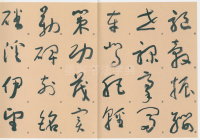 驅轂振纓
世祿侈富
車駕肥輕
策功茂實
勒碑刻銘
磻溪伊尹